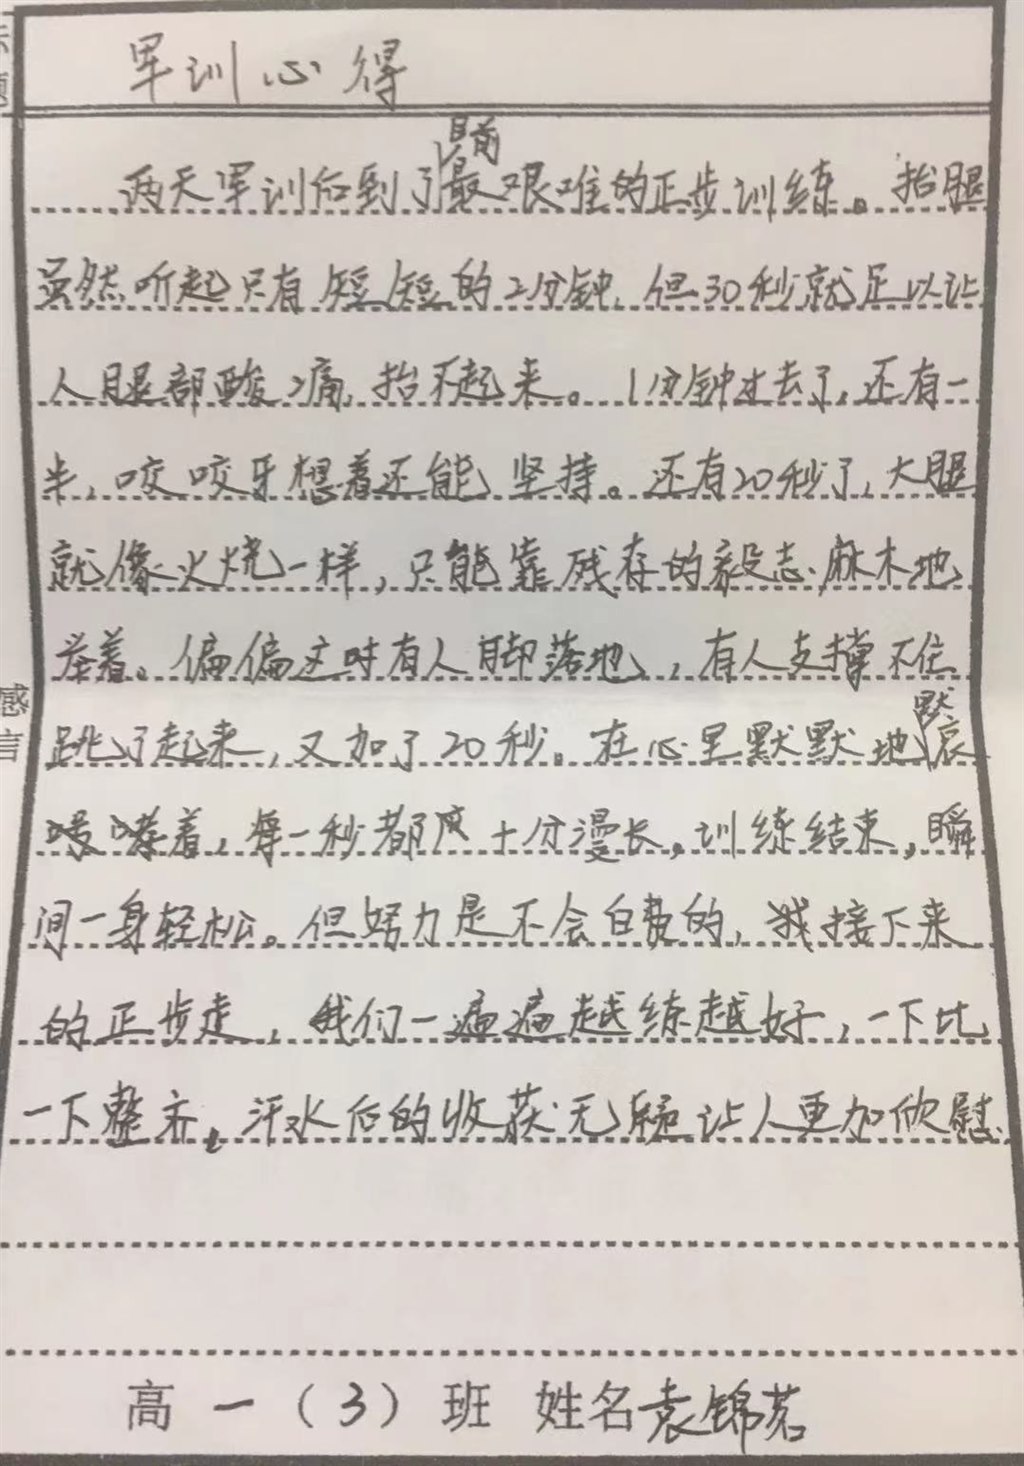 军训心得
两天军训后到了目前最艰难的正步训练。抬腿
虽然听起只有短短的2分钟，但30秒就足以让
人腿部酸痛，抬不起来。1分钟过去了，还有一
半，咬咬牙想着还能坚持。还有20秒了，大腿
就像火烧一样，只能靠残存的毅志麻木地
举着。偏偏这时有人脚落地，有人支撑不住
跳了起来，又加了20秒。在心里默默地默哀
嚎着，每一秒都十分漫长。训练结束，瞬
间一身轻松。但努力是不会白费的，我接下来
的正步走，我们一遍遍越练越好，一下比
一下整齐。汗水后的收获无疑让人更加欣慰.
感言
高一（3）班 姓名袁锦茗